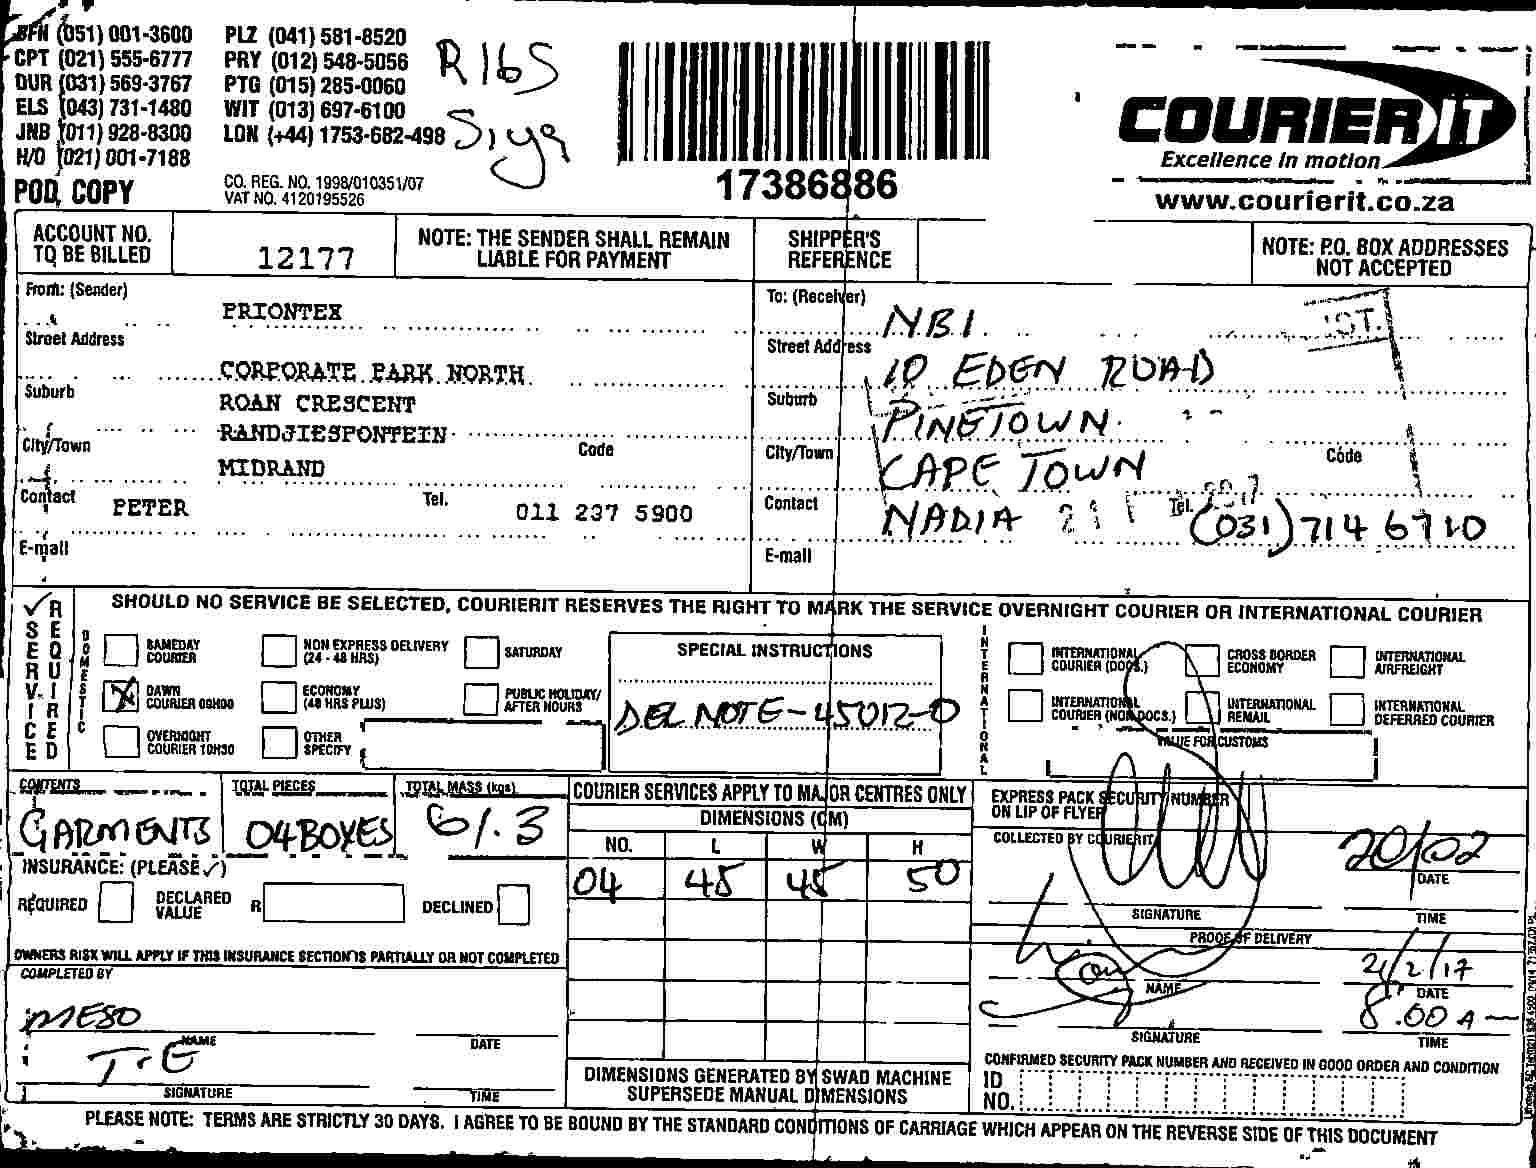 BFN (051) 001-3600 PLZ (041) 581-8520
CPT (021) 555-6777 PRY (012) 548-5056
DUR (031) 569-3767 PTG (015) 285-0060
ELS (043) 731-1480 WIT (013) 697-6100
JNB (011) 928-8300 LON (+44) 1753-682-498
H/O (021) 001-7188
R165
Siya
POD COPY
CO. REG. NO. 1998/010351/07
VAT NO. 4120195526
17386886
COURIER IT
Excellence in motion
www.courierit.co.za
ACCOUNT NO. TO BE BILLED 12177
NOTE: THE SENDER SHALL REMAIN LIABLE FOR PAYMENT
SHIPPER'S REFERENCE
NOTE: P.O. BOX ADDRESSES NOT ACCEPTED
From: (Sender) PRIONTEX
Street Address
CORPORATE PARK NORTH
Suburb
ROAN CRESCENT
RANDJIESFONTEIN
City/Town Code
MIDRAND
Contact PETER Tel. 011 237 5900
E-mail
To: (Receiver) NBI
Street Address 10 EDEN ROAD
Suburb PINETOWN
City/Town CAPE TOWN Code
Contact NADIA Tel. (031) 714 6710
E-mail
SERVICE REQUIRED
SHOULD NO SERVICE BE SELECTED, COURIERIT RESERVES THE RIGHT TO MARK THE SERVICE OVERNIGHT COURIER OR INTERNATIONAL COURIER
DOMESTIC
SAMEDAY COURIER
NON EXPRESS DELIVERY (24 - 48 HRS)
SATURDAY
DAWN COURIER 09H00
ECONOMY (48 HRS PLUS)
PUBLIC HOLIDAY/ AFTER HOURS
OVERNIGHT COURIER 10H30
OTHER SPECIFY
SPECIAL INSTRUCTIONS
DEL NOTE-45012-0
INTERNATIONAL
INTERNATIONAL COURIER (DOCS.)
CROSS BORDER ECONOMY
INTERNATIONAL AIRFREIGHT
INTERNATIONAL COURIER (NON DOCS.)
INTERNATIONAL REMAIL
INTERNATIONAL DEFERRED COURIER
VALUE FOR CUSTOMS
CONTENTS TOTAL PIECES TOTAL MASS (kgs)
GARMENTS 04 BOXES 61.3
INSURANCE: (PLEASE ✓)
REQUIRED DECLARED VALUE R DECLINED
OWNERS RISK WILL APPLY IF THIS INSURANCE SECTION IS PARTIALLY OR NOT COMPLETED
COMPLETED BY
MESO
NAME DATE
SIGNATURE TIME
COURIER SERVICES APPLY TO MAJOR CENTRES ONLY
DIMENSIONS (CM)
NO. L W H
04 45 45 50
DIMENSIONS GENERATED BY SWAD MACHINE SUPERSEDE MANUAL DIMENSIONS
EXPRESS PACK SECURITY NUMBER ON LIP OF FLYER
COLLECTED BY COURIERIT
20/02
DATE
SIGNATURE TIME
PROOF OF DELIVERY
21/2/17
NAME DATE
8.00 A
SIGNATURE TIME
CONFIRMED SECURITY PACK NUMBER AND RECEIVED IN GOOD ORDER AND CONDITION
ID NO.
PLEASE NOTE: TERMS ARE STRICTLY 30 DAYS. I AGREE TO BE BOUND BY THE STANDARD CONDITIONS OF CARRIAGE WHICH APPEAR ON THE REVERSE SIDE OF THIS DOCUMENT